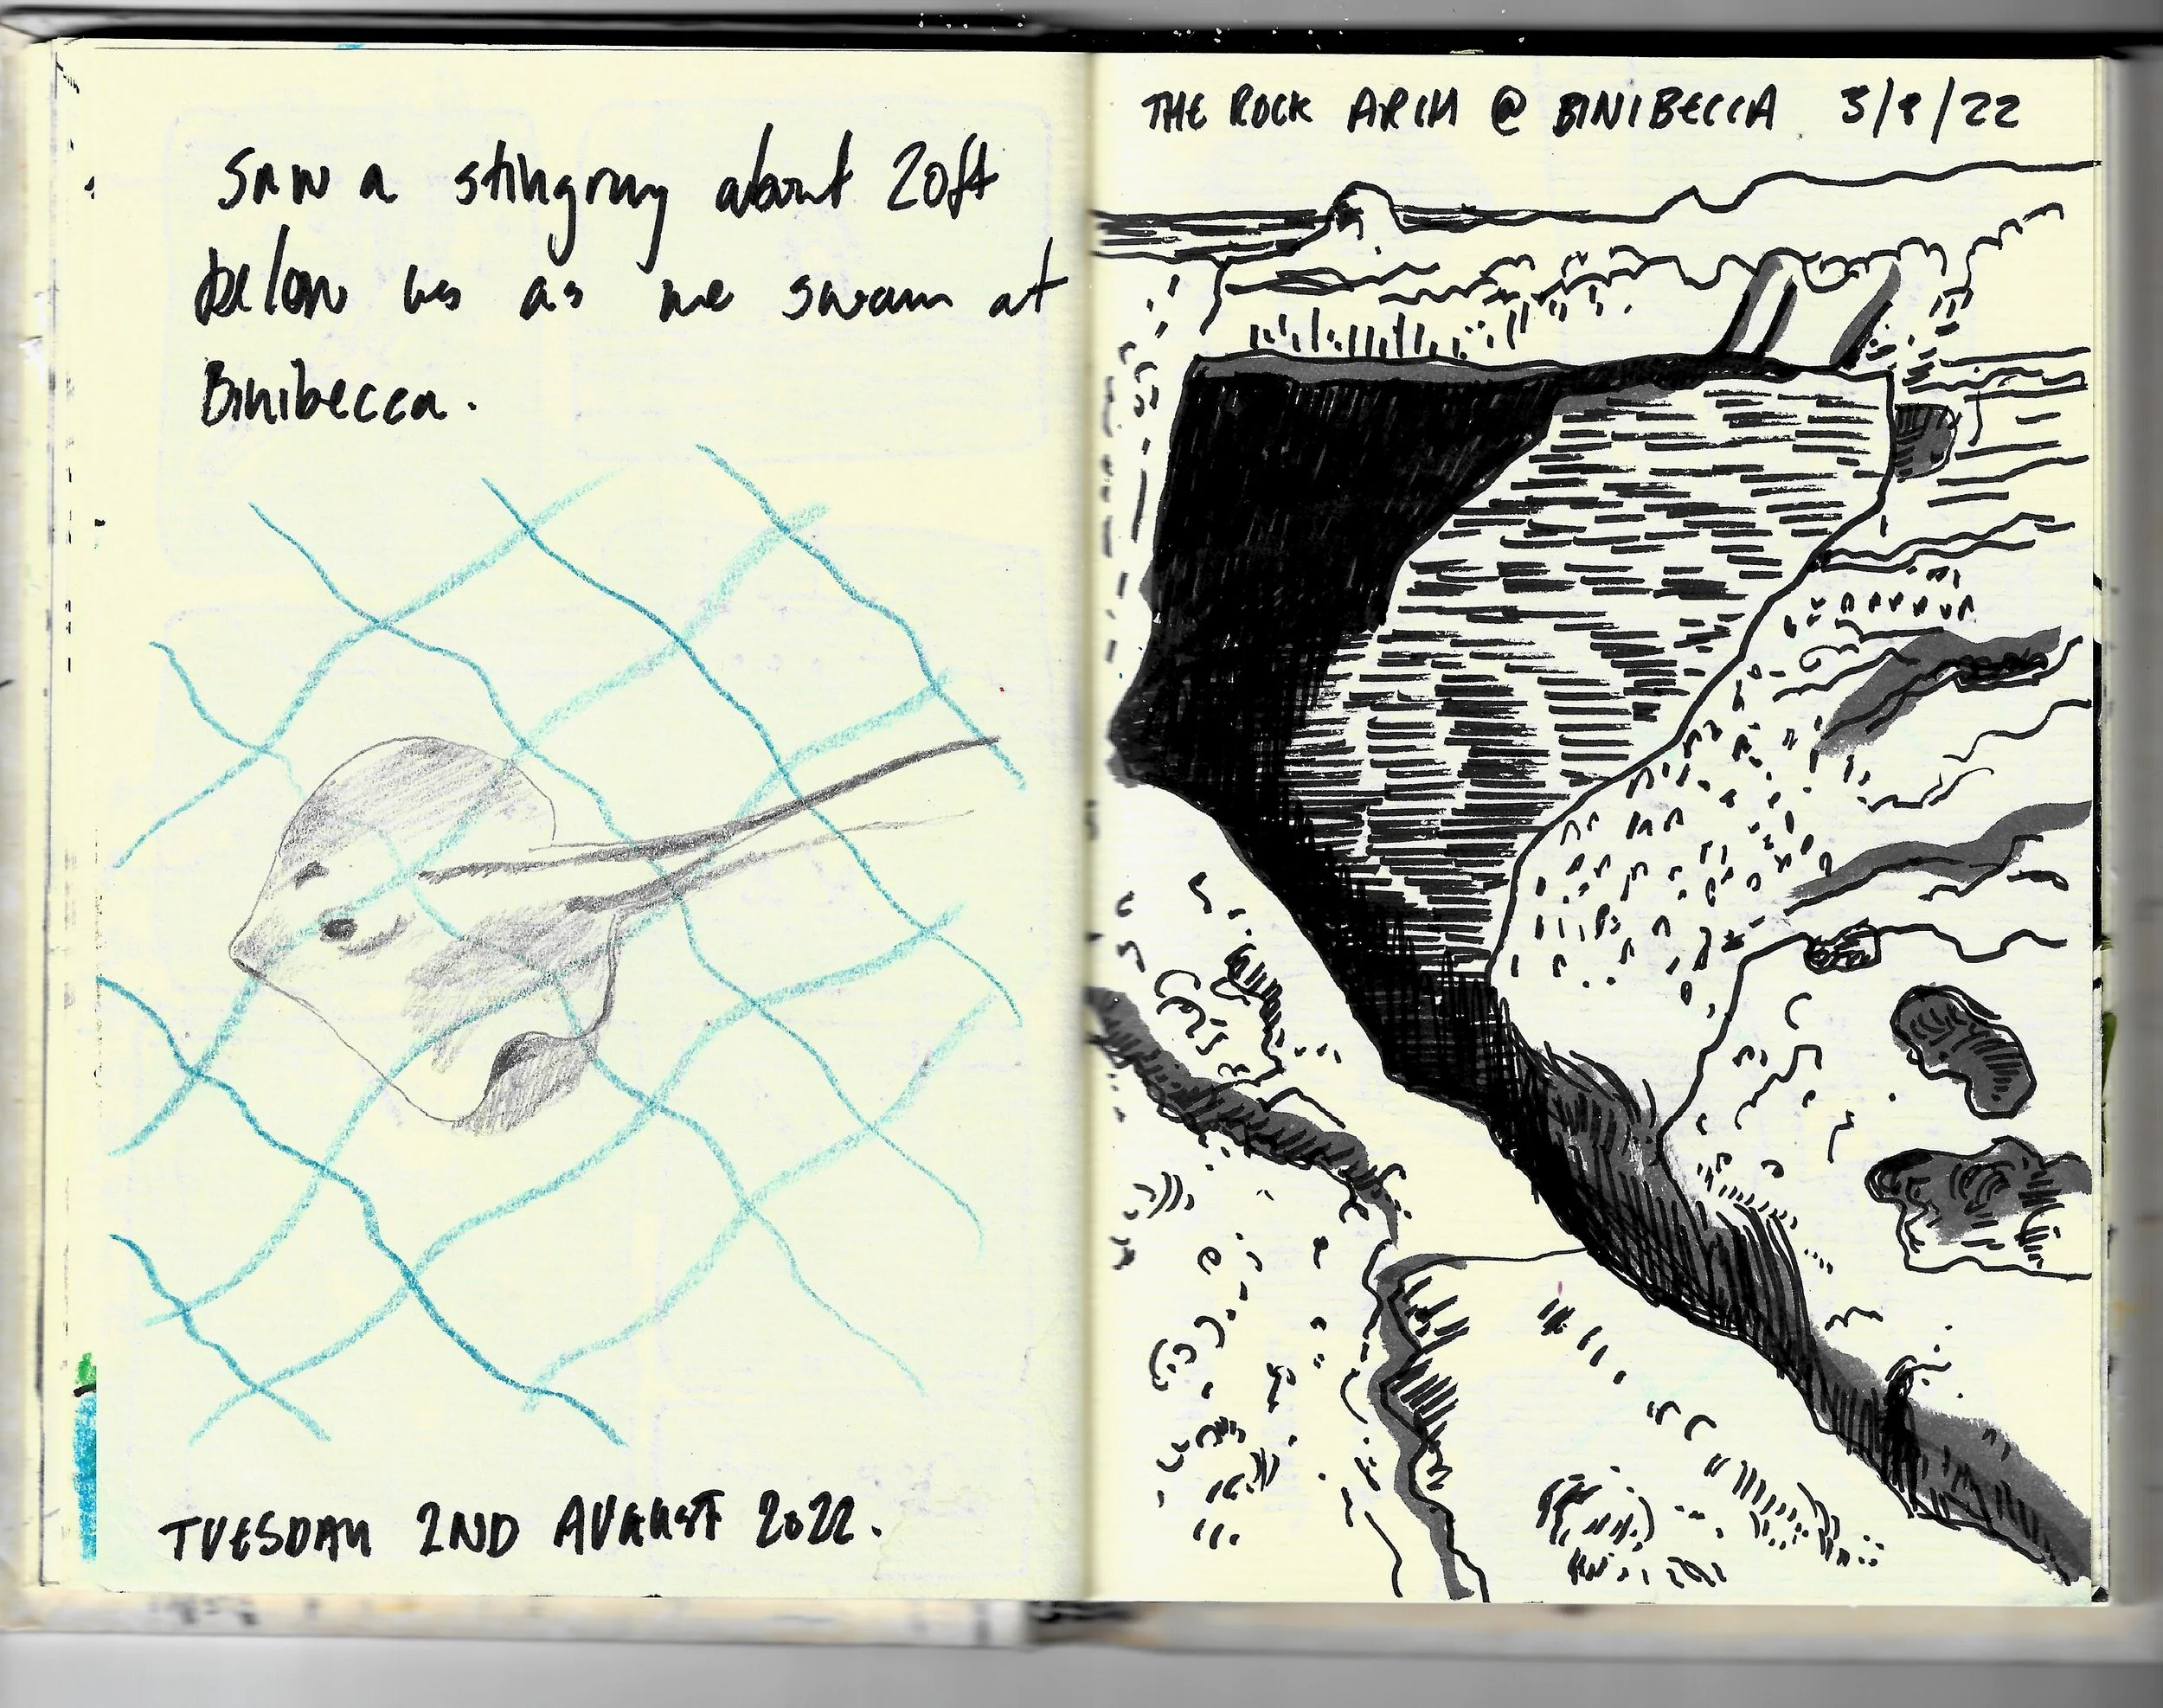 Saw a stingray about 20ft
below us as we swam at
Binibecca.
TUESDAY 2ND AUGUST 2022.
THE ROCK ARCH @ BINIBECCA 3/8/22